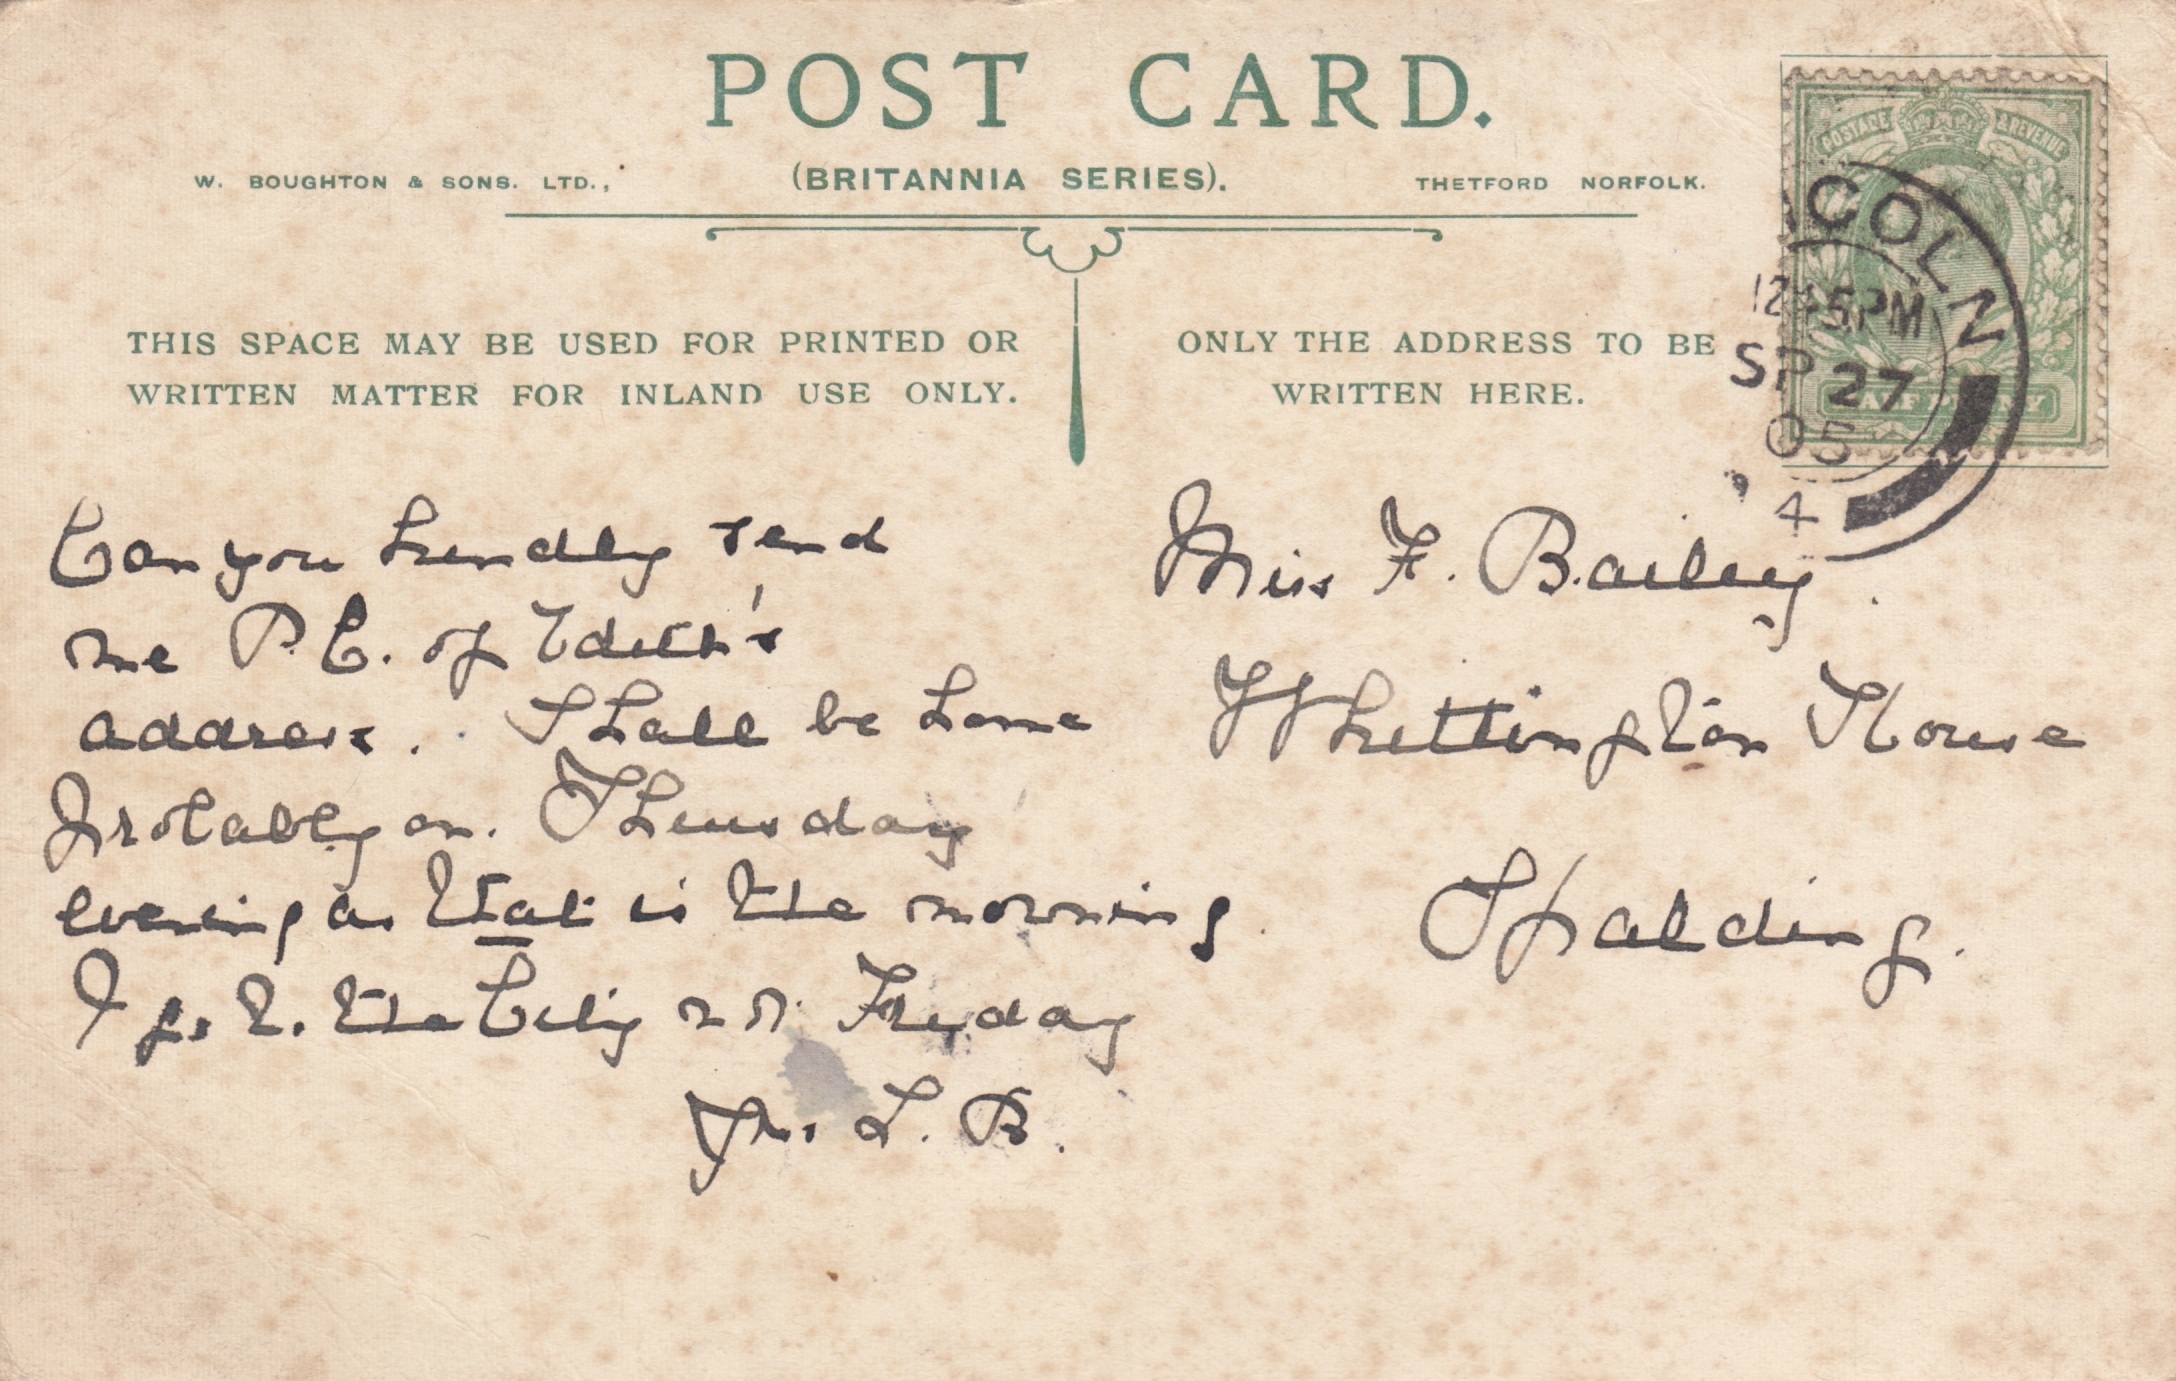 POST CARD.
W. BOUGHTON & SONS. LTD., (BRITANNIA SERIES). THETFORD NORFOLK.
THIS SPACE MAY BE USED FOR PRINTED OR
WRITTEN MATTER FOR INLAND USE ONLY.
ONLY THE ADDRESS TO BE
WRITTEN HERE.
POSTAGE & REVENUE
HALF PENNY
COLN
12 45PM
SP 27
05
4
Can you kindly send
me P.C. of Edith's
address. Shall be home
probably on Thursday
evening as that is the morning
I go to the City not Friday
L. B.
Miss F. Bailey.
Whittington House
Spalding.